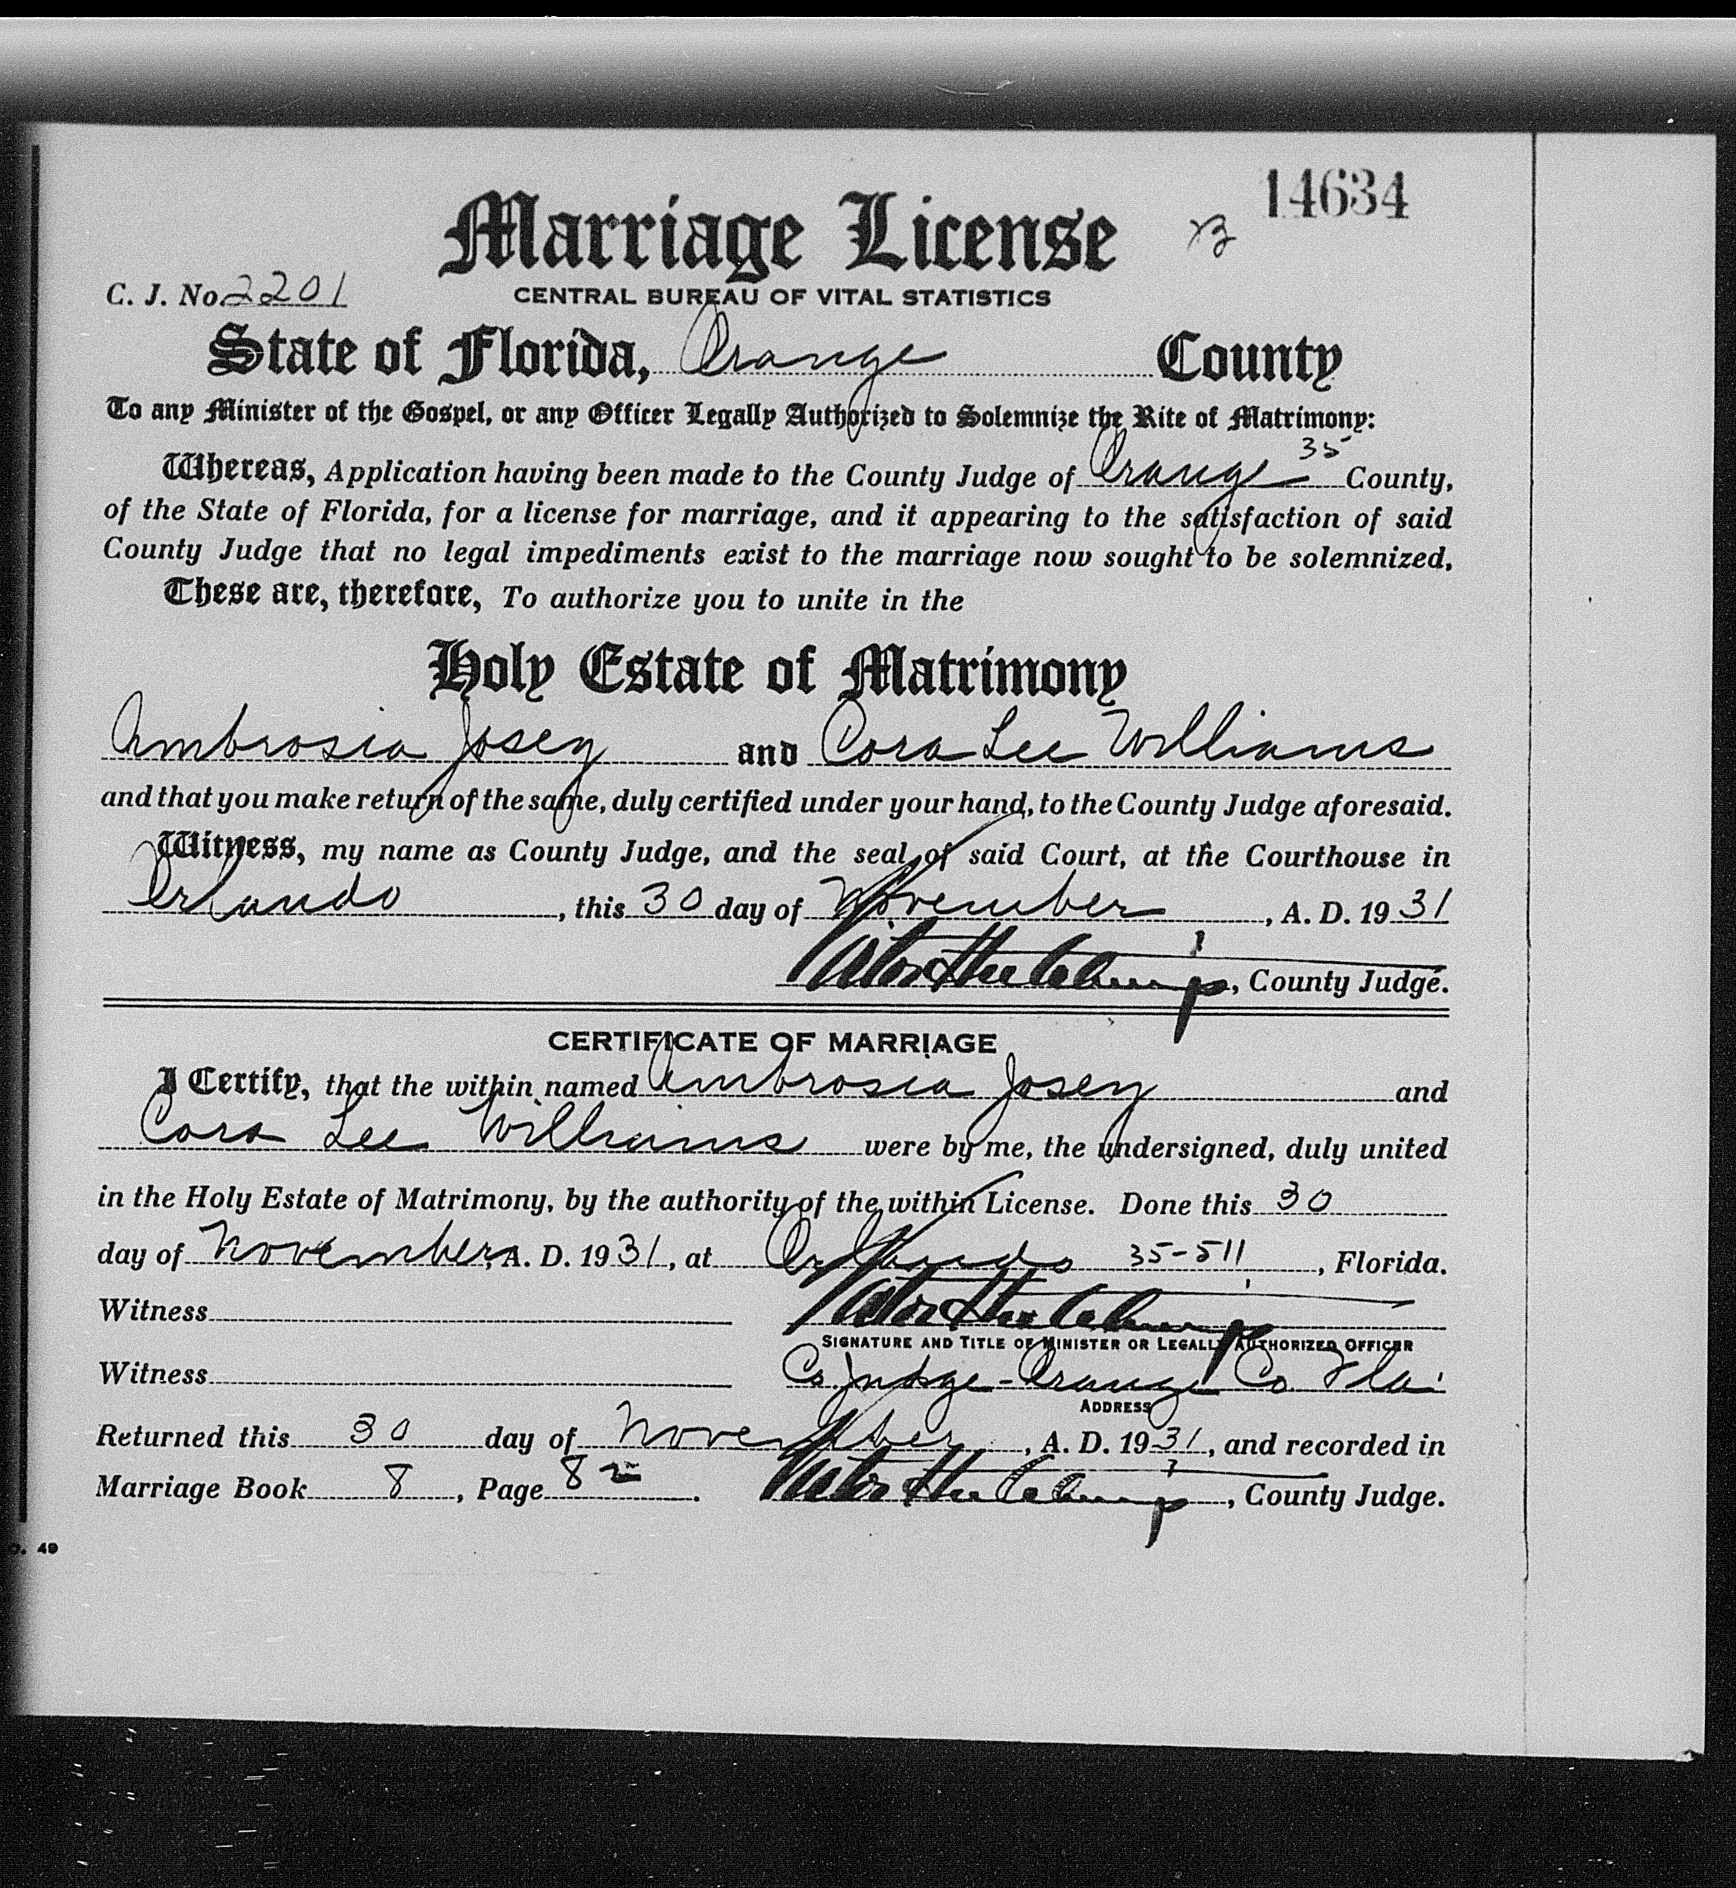 14634
Marriage License
C. J. No. 2201
CENTRAL BUREAU OF VITAL STATISTICS
State of Florida, Orange County
To any Minister of the Gospel, or any Officer Legally Authorized to Solemnize the Rite of Matrimony:
35
Whereas, Application having been made to the County Judge of Orange County,
of the State of Florida, for a license for marriage, and it appearing to the satisfaction of said
County Judge that no legal impediments exist to the marriage now sought to be solemnized,
These are, therefore, To authorize you to unite in the
Holy Estate of Matrimony
Ambrosia Josey and Cora Lee Williams
and that you make return of the same, duly certified under your hand, to the County Judge aforesaid.
Witness, my name as County Judge, and the seal of said Court, at the Courthouse in
Orlando, this 30 day of November, A. D. 19 31
Victor Hutchins, County Judge.
CERTIFICATE OF MARRIAGE
I Certify, that the within named Ambrosia Josey and
Cora Lee Williams were by me, the undersigned, duly united
in the Holy Estate of Matrimony, by the authority of the within License. Done this 30
day of November, A. D. 19 31, at Orlando 35-511, Florida.
Witness Victor Hutchins
SIGNATURE AND TITLE OF MINISTER OR LEGALLY AUTHORIZED OFFICER
Witness Co Judge - Orange Co Fla.
ADDRESS
Returned this 30 day of November, A. D. 19 31, and recorded in
Marriage Book 8, Page 82. Victor Hutchins, County Judge.
49